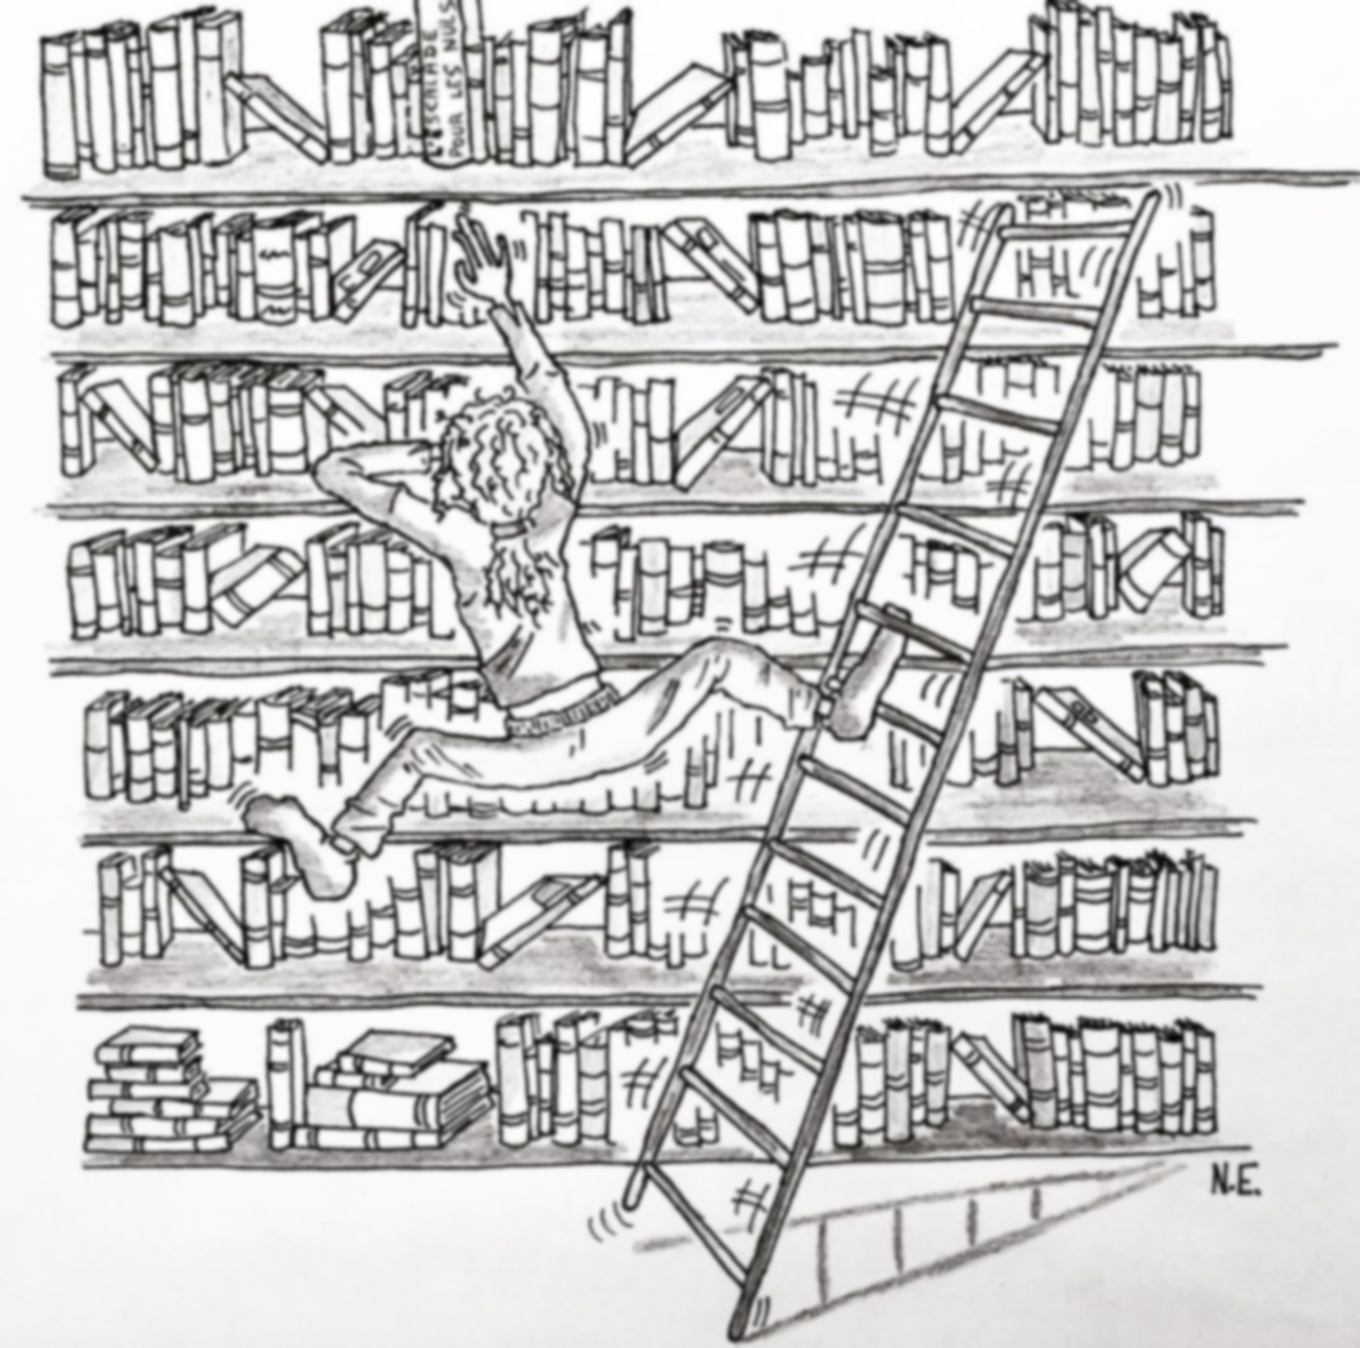 L'ESCALADE
POUR LES NULS
N.E.